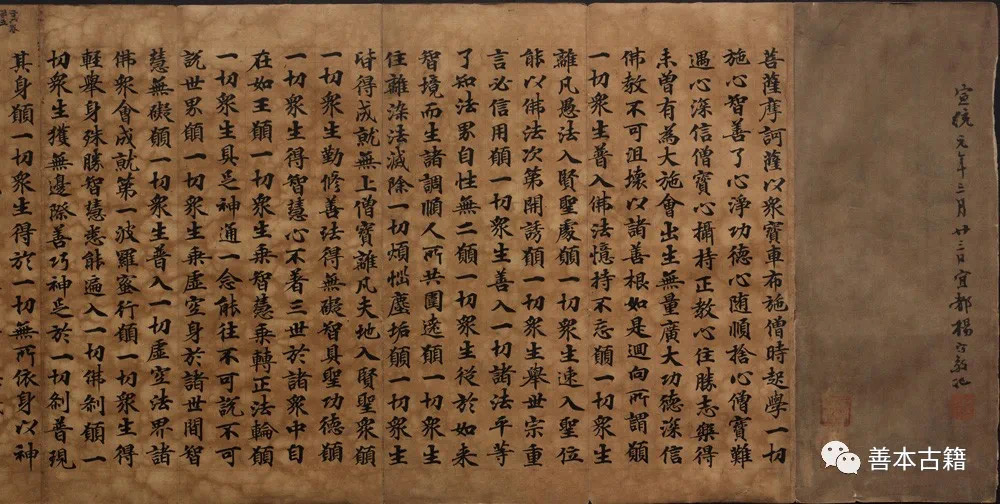 宣統元年三月廿三日宜都楊守敬記
菩薩摩訶薩以衆寶車布施僧時起學一切
施心智善了心淨功德心随順捨心僧寶難
遇心深信僧寶心攝持正教心住勝志樂得
未曾有為大施會出生無量廣大功德深信
佛教不可沮壞以諸善根如是迴向所謂願
一切衆生普入佛法憶持不忘願一切衆生
離凡愚法入賢聖處願一切衆生速入聖位
能以佛法次第開誘願一切衆生舉世宗重
言必信用願一切衆生善入一切諸法平等
了知法界自性無二願一切衆生從於如来
智境而生諸調順人所共圍遶願一切衆生
住離染法滅除一切煩惱塵垢願一切衆生
皆得成就無上僧寶離凡夫地入賢聖衆願
一切衆生勤修善法得無礙智具聖功德願
一切衆生得智慧心不著三世於諸衆中自
在如王願一切衆生乘智慧乘轉正法輪願
一切衆生具足神通一念能往不可說不可
說世界願一切衆生乘虛空身於諸世間智
慧無礙願一切衆生普入一切虛空法界諸
佛衆會成就第一波羅蜜行願一切衆生得
輕舉身殊勝智慧悉能遍入一切佛刹願一
切衆生獲無邊際善巧神足於一切刹普現
其身願一切衆生得於一切無所依身以神
善本古籍